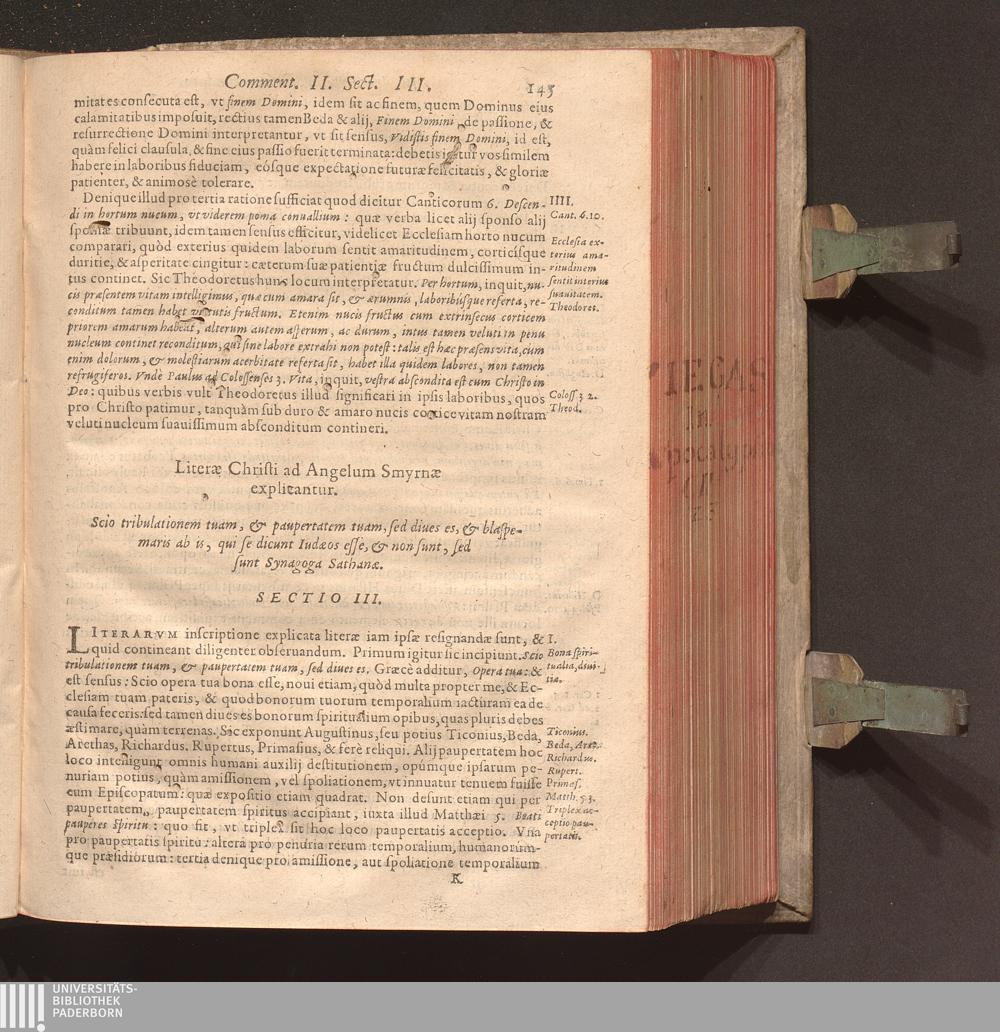 Comment. II. Sect. III. 143
mitates consecuta est, vt finem Domini, idem sit ac finem, quem Dominus eius
calamitatibus imposuit, rectius tamen Beda & alij, Finem Domini, de passione, &
resurrectione Domini interpretantur, vt sit sensus, Vidistis finem Domini, id est,
quàm felici clausula, & fine eius passio fuerit terminata: debetis igitur vos similem
habere in laboribus fiduciam, eósque expectatione futuræ felicitatis, & gloriæ
patienter, & animosè tolerare.
Denique illud pro tertia ratione sufficiat quod dicitur Canticorum 6. Descen-
di in hortum nucum, vt viderem poma conuallium: quæ verba licet alij sponso alij
sponsæ tribuunt, idem tamen sensus efficitur, videlicet Ecclesiam horto nucum
comparari, quòd exterius quidem laborum sentit amaritudinem, corticisque
duritie, & asperitate cingitur: cæterum suæ patientiæ fructum dulcissimum in-
tus continet. Sic Theodoretus hunc locum interpretatur. Per hortum, inquit, nu-
cis præsentem vitam intelligimus, quæ cum amara sit, & ærumnis, laboribusque referta, re-
conditum tamen habet virtutis fructum. Etenim nucis fructus cum extrinsecus corticem
priorem amarum habeat, alterum autem asperum, ac durum, intus tamen veluti in penu
nucleum continet reconditum, qui sine labore extrahi non potest: talis est hæc præsens vita, cum
enim dolorum, & molestiarum acerbitate referta sit, habet illa quidem labores, non tamen
refrugiferos. Vnde Paulus ad Colossenses 3. Vita, inquit, vestra abscondita est cum Christo in
Deo: quibus verbis vult Theodoretus illud significari in ipsis laboribus, quos
pro Christo patimur, tanquàm sub duro & amaro nucis cortice vitam nostram
veluti nucleum suauissimum absconditum contineri.
IIII.
Cant. 6.10.
Ecclesia ex-
terius ama-
ritudinem
sentit interius
suauitatem.
Theodoret.
Coloss. 3 2.
Theod.
Literæ Christi ad Angelum Smyrnæ
explicantur.
Scio tribulationem tuam, & paupertatem tuam, sed diues es, & blaspe-
maris ab is, qui se dicunt Iudæos esse, & non sunt, sed
sunt Synagoga Sathanæ.
SECTIO III.
LITERARVM inscriptione explicata literæ iam ipsæ resignandæ sunt, &
quid contineant diligenter obseruandum. Primum igitur sic incipiunt. Scio
tribulationem tuam, & paupertatem tuam, sed diues es. Græcè additur, Opera tua: &
est sensus: Scio opera tua bona esse, noui etiam, quòd multa propter me, & Ec-
clesiam tuam pateris, & quod bonorum tuorum temporalium iacturam ea de
causa feceris: sed tamen diues es bonorum spiritualium opibus, quas pluris debes
æstimare, quàm terrenas. Sic exponunt Augustinus, seu potius Ticonius, Beda,
Arethas, Richardus. Rupertus, Primasius, & ferè reliqui. Alij paupertatem hoc
loco intelligunt omnis humani auxilij destitutionem, opúmque ipsarum pe-
nuriam potius, quàm amissionem, vel spoliationem, vt innuatur tenuem fuisse
eum Episcopatum: quæ expositio etiam quadrat. Non desunt etiam qui per
paupertatem, paupertatem spiritus accipiant, iuxta illud Matthæi 5. Beati
pauperes Spiritu: quo fit, vt triplex sit hoc loco paupertatis acceptio. Vna
pro paupertatis spiritu: altera pro penuria rerum temporalium, humanorúm-
que præsidiorum: tertia denique pro amissione, aut spoliatione temporalium
I.
Bona spiri-
tualia, diui-
tiæ.
Ticonius.
Beda, Aret.
Richardus.
Rupert.
Primas.
Matth. 5 3.
Triplex ac-
ceptio pau-
pertatis.
K
UNIVERSITÄTS-
BIBLIOTHEK
PADERBORN